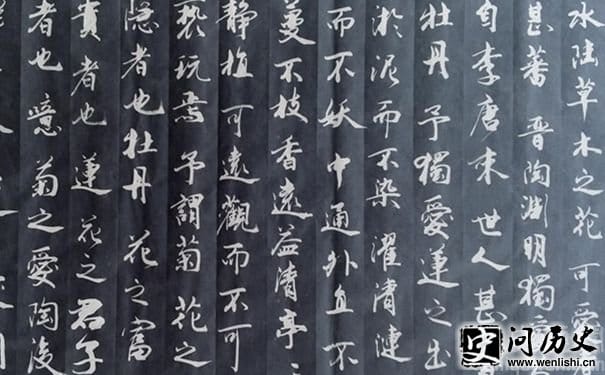 水陸草木之花可愛
甚蕃晉陶淵明獨
自李唐來世人甚
牡丹予獨愛蓮之出
淤泥而不染濯清漣
而不妖中通外直不
蔓不枝香遠益清亭
靜植可遠觀而不可
褻玩焉予謂菊花之
隱者也牡丹花之富
貴者也蓮花之君子
者也噫菊之愛陶後
史 问历史
www.wenlishi.cn